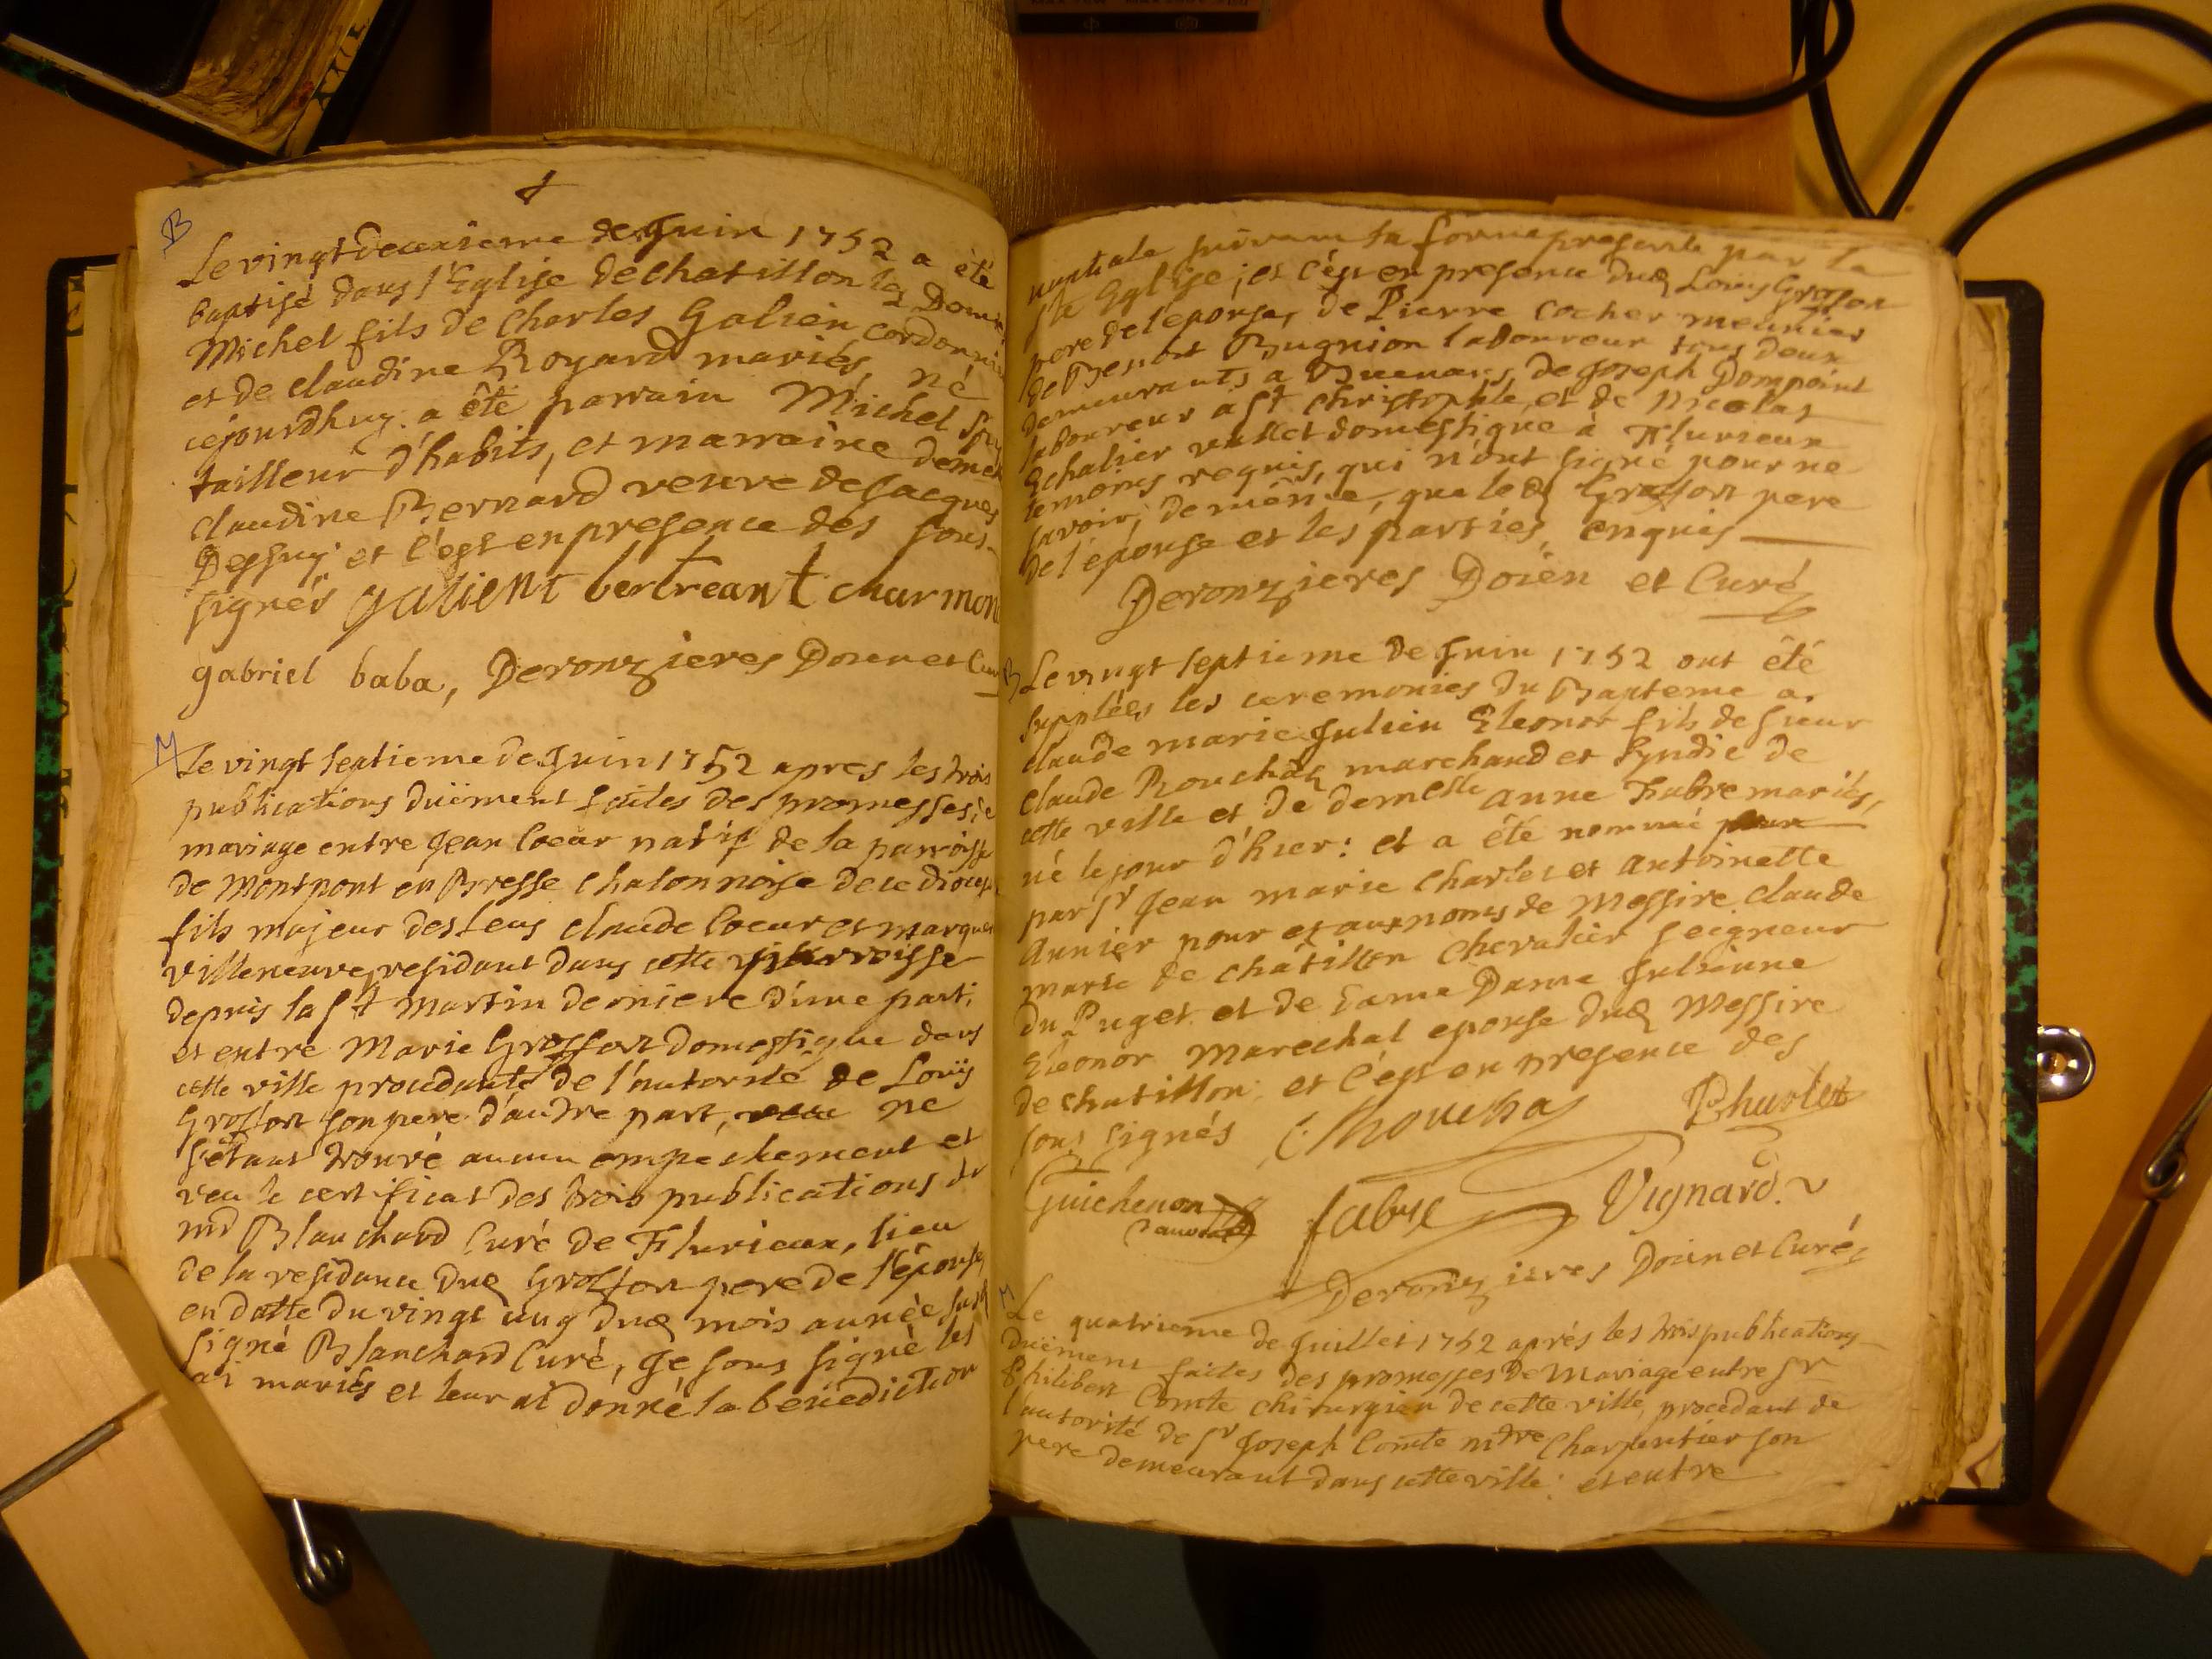 B
Le vingt deuxieme de Juin 1752 a été
baptisé dans l'Eglise de chatillon les Dom
Michel fils de Charles Galien cordonni
et de claudine Royard mariés, né
cejourdhuy. a été parrain Michel
tailleur d'habits, et marraine deme
claudine Bernard veuve de Jacques
Depsuy et c'est en presence des sous-
signés galient bertreant charmon
gabriel baba, Deronzieres Doien et Cur
M
Le vingt septieme de Juin 1752 apres les trois
publications duëment faites des promesses de
mariage entre Jean Coeur natif de la parroisse
de Montpont en Bresse chalonnoise de ce dioces
fils majeur des feus claude Coeur et margue
villeneuve, residant dans cette parroisse
depuis la St Martin derniere d'une part;
et entre Marie Grosfort domestique dans
cette ville procedante de l'autorité de Loüis
Grosfort son pere d'autre part, ne
s'étant trouvé aucun empéchement et
veu le certificat des trois publications de
mr Blanchard Curé de Flurieux, lieu
de la residance dud Grosfort pere de l'épouse,
en datte du vingt ung dud mois année susd
signé Blanchard Curé, Je sous signé les
ai mariés et leur ai donné la benediction
nuptiale suivant la forme prescrite par la
ste Eglise; et c'est en presence dud Louis Grosfort
pere de l'epouse, de Pierre Cocher meunier
de Benoit Bugnion laboureur tous deux
demeurants a Buenans, de Joseph Dompoint
laboureur a St christophle, et de Nicolas
Echalier vallet domestique à Flurieux
temoins requis, qui n'ont signé pour ne
savoir, de même, que led Grosfort pere
de l'épouse et les parties, enquis
Deronzieres Doien et Curé
B
Le vingt septieme de Juin 1752 ont été
supplées les ceremonies du Bapteme a
claude marie Julien Eleonor fils de sieur
claude Rouchas marchand et Syndic de
cette ville et de demelle anne Fabre mariés,
né le jour d'hier: et a été nommé
par Sr Jean marie Charles et antoinette
aunier pour et aux noms de Messire claude
marie de châtillon Chevalier seigneur
du Puget et de Dame Julienne
Eleonor Marechal epouse dud Messire
de chatillon; et c'est en presence des
sous signés C. Rouchas Charlet
Guichenon fabre Vignard.
Deronzieres Doien et Curé
M
Le quatrieme de Juillet 1752 aprés les trois publications
duëment faites des promesses de Mariage entre Sr
Philibert Comte chirurgien de cette ville, procedant de
l'autorité de Sr Joseph Comte mtre Charpentier son
pere demeurant dans cette ville: et entre